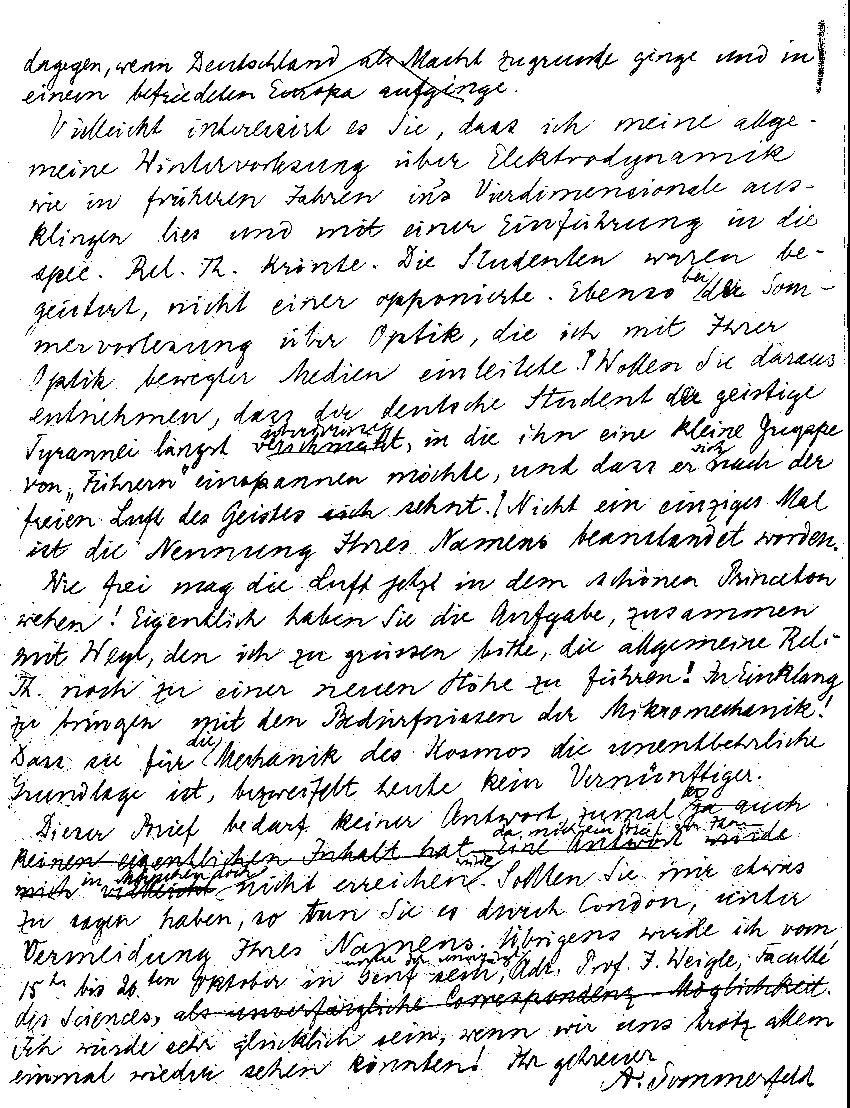 dagegen, wenn Deutschland als Macht zugrunde ginge und in
einem befriedeten Europa aufginge.
Vielleicht interessirt es Sie, dass ich meine allge-
meine Wintervorlesung über Elektrodynamik
wie in früheren Jahren in's Vierdimensionale aus-
klingen lies und mit einer Einführung in die
spec. Rel. Th. krönte. Die Studenten waren be-
geistert, nicht einer opponierte. Ebenso bei der Som-
mervorlesung über Optik, die ich mit Ihrer
Optik bewegter Medien einleitete.! Wollen Sie daraus
entnehmen, dass der deutsche Student die geistige
Tyrannei längst verschmäht, in die ihn eine kleine Gruppe
von „Führern" einspannen möchte, und dass er sich nach der
freien Luft des Geistes sich sehnt.! Nicht ein einziges Mal
ist die Nennung Ihres Namens beanstandet worden.
Wie frei mag die Luft jetzt in dem schönen Princeton
wehen! Eigentlich haben Sie die Aufgabe, zusammen
mit Weyl, den ich zu grüssen bitte, die allgemeine Rel.-
Th. noch zu einer neuen Höhe zu führen! In Einklang
zu bringen mit den Bedürfnissen der Mikromechanik!
Dass sie für die Mechanik des Kosmos die unentbehrliche
Grundlage ist, bezweifelt heute kein Vernünftiger.
Dieser Brief bedarf keiner Antwort, zumal ja auch
keinen eigentlichen Inhalt hat. Eine Antwort würde
mich in München doch vielleicht nicht erreichen würde. Sollten Sie mir etwas
zu sagen haben, so tun Sie es durch Condon, unter
Vermeidung Ihres Namens. Übrigens werde ich vom
15ten bis 20ten Oktober in Genf sein, Adr. Prof. J. Weigle, Faculté
des Sciences, als unverfängliche Correspondenz-Möglichkeit.
Ich würde sehr glücklich sein, wenn wir uns trotz allem
einmal wieder sehen könnten! Ihr getreuer
A. Sommerfeld